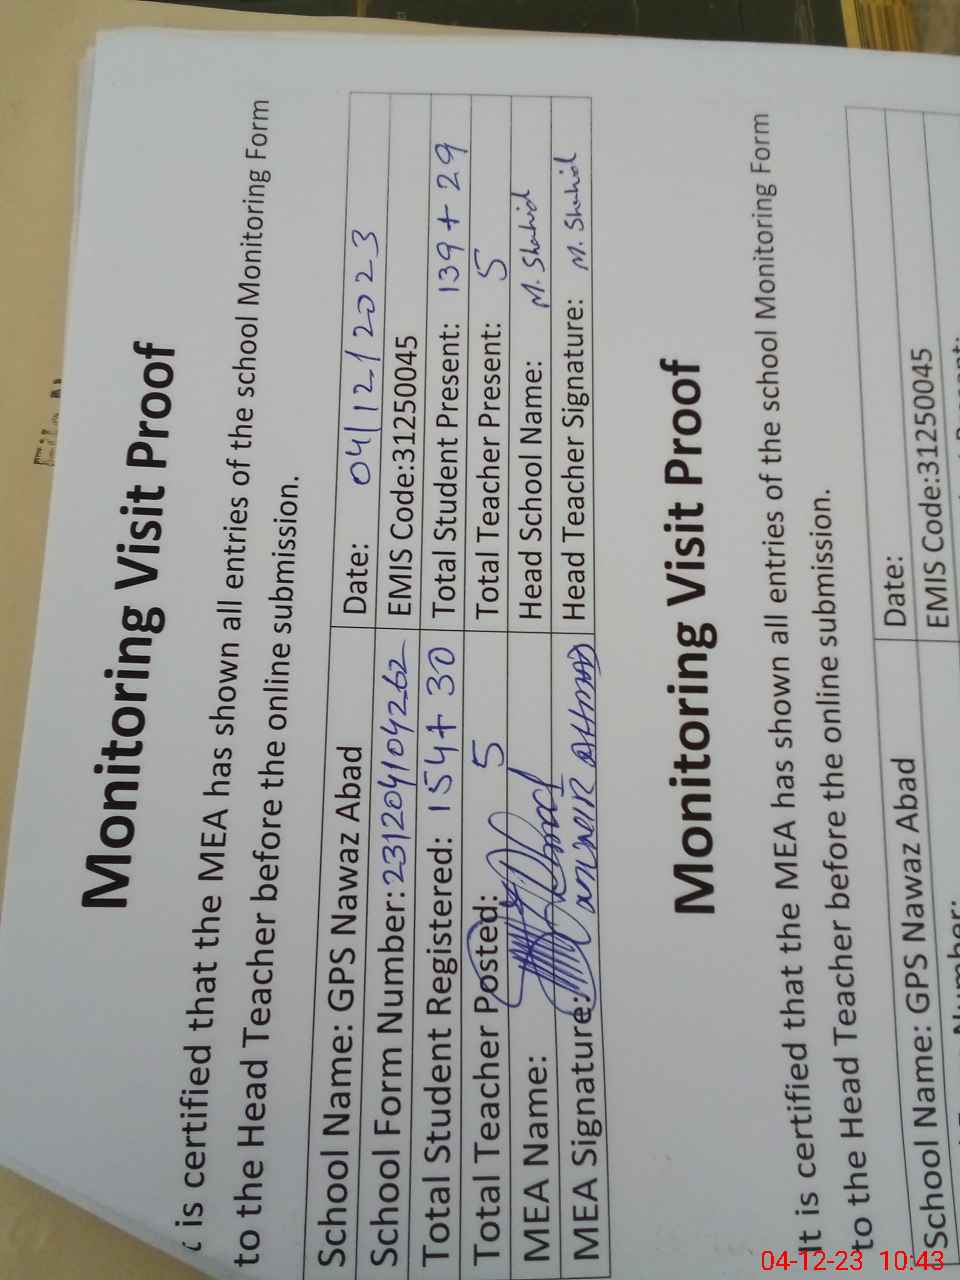 Monitoring Visit Proof
is certified that the MEA has shown all entries of the school Monitoring Form
to the Head Teacher before the online submission.
School Name: GPS Nawaz Abad Date: 04/12/2023
School Form Number: 231204104262 EMIS Code:31250045
Total Student Registered: 154+30 Total Student Present: 139+29
Total Teacher Posted: 5 Total Teacher Present: 5
MEA Name: Head School Name: M. Shahid
MEA Signature: AHMAD Head Teacher Signature: M. Shahid
Monitoring Visit Proof
It is certified that the MEA has shown all entries of the school Monitoring Form
to the Head Teacher before the online submission.
School Name: GPS Nawaz Abad Date:
EMIS Code:31250045
04-12-23 10:43